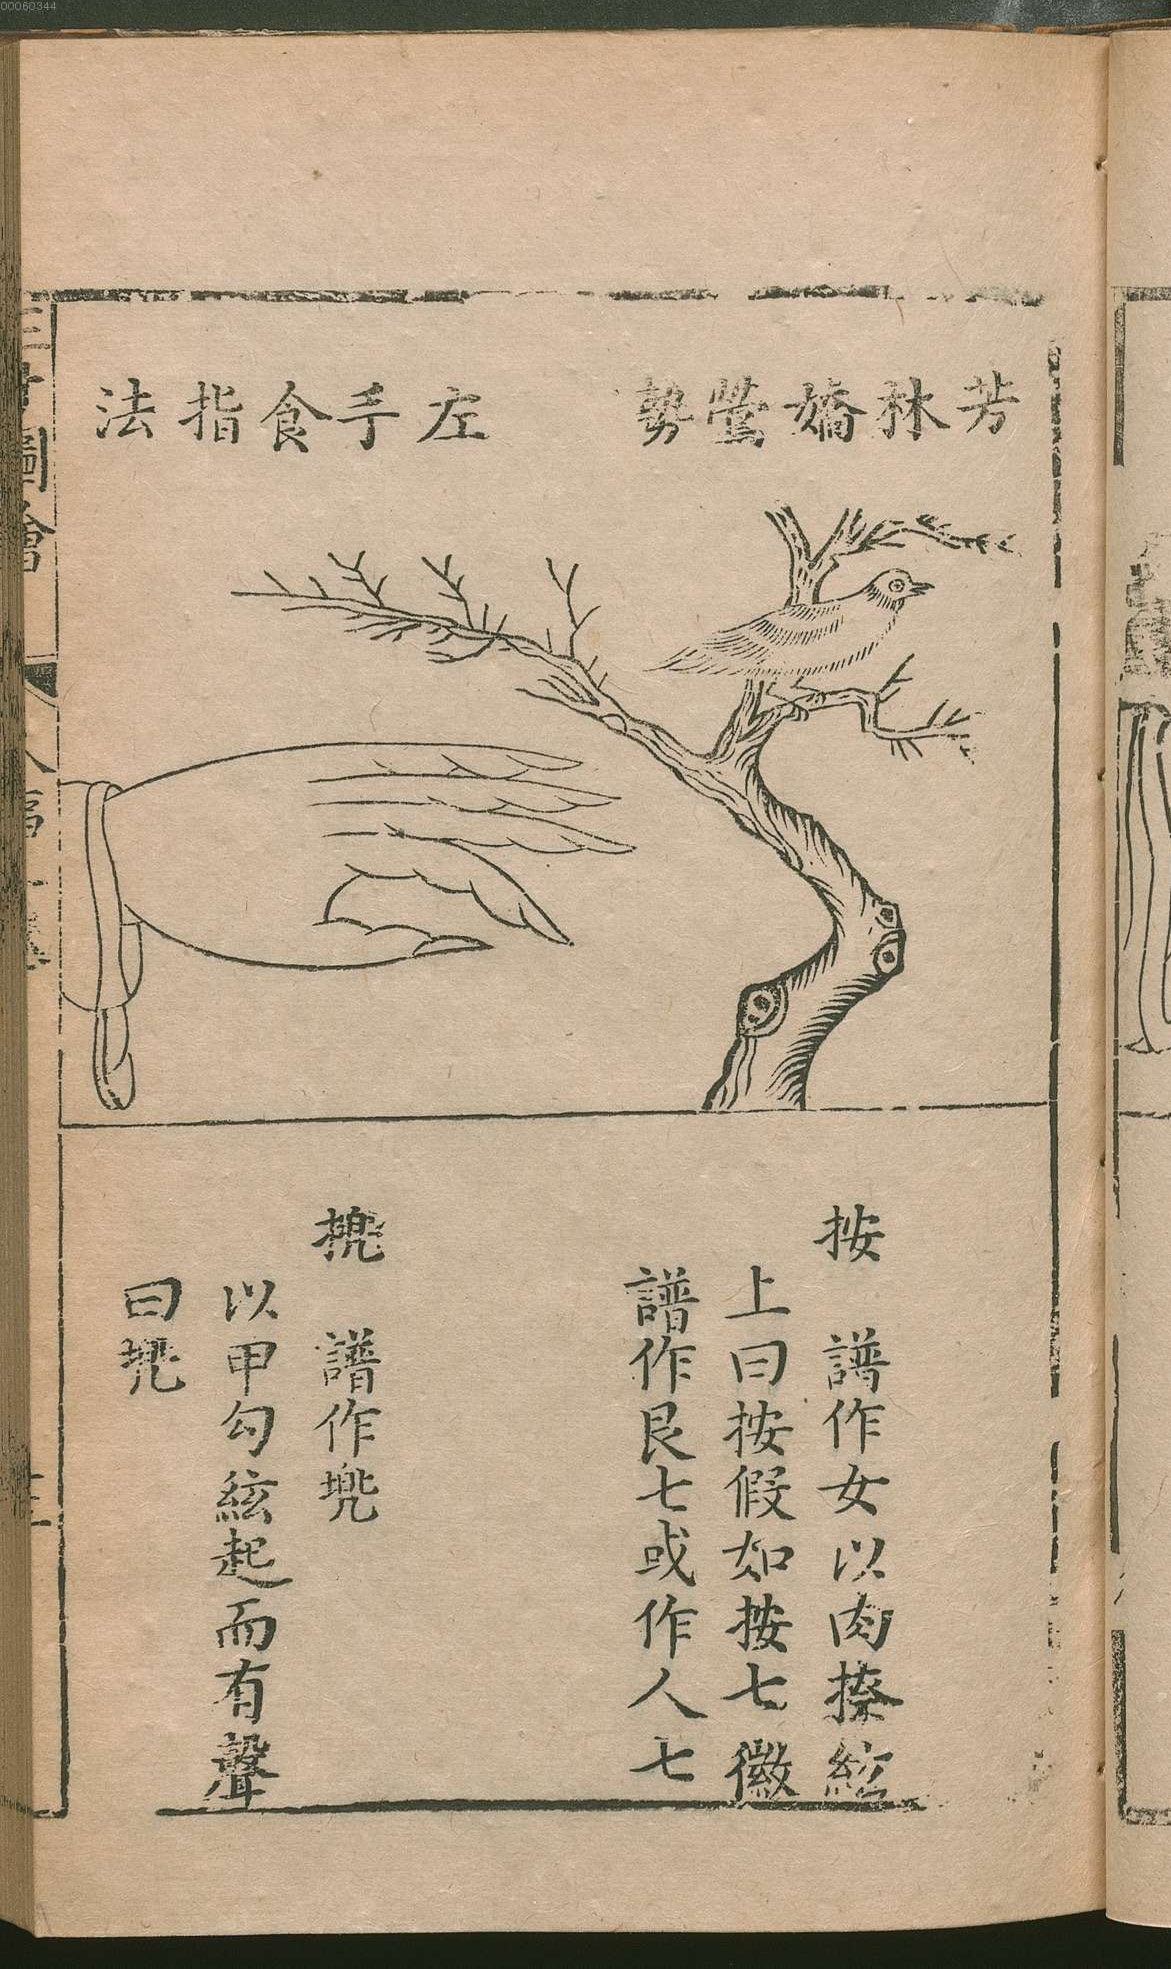 00060344
芳林嬌鶯勢
左手食指法
按　譜作女以肉捺絃
上曰按假如按七徽
譜作艮七或作人七
譜作兠
以甲勾絃起而有聲
曰兠
圖會